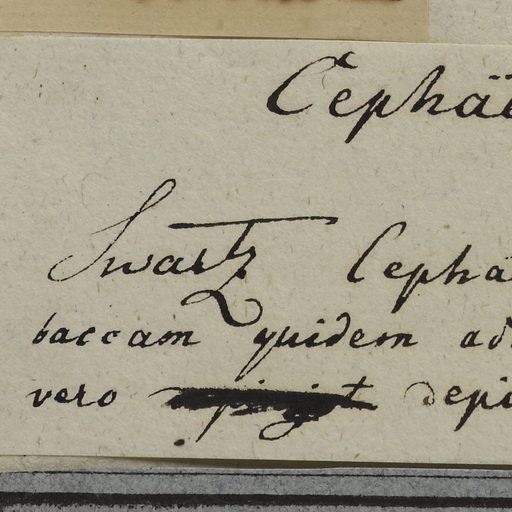 Cephaë
Swartz Cepha
baccam quidem ad
vero depi